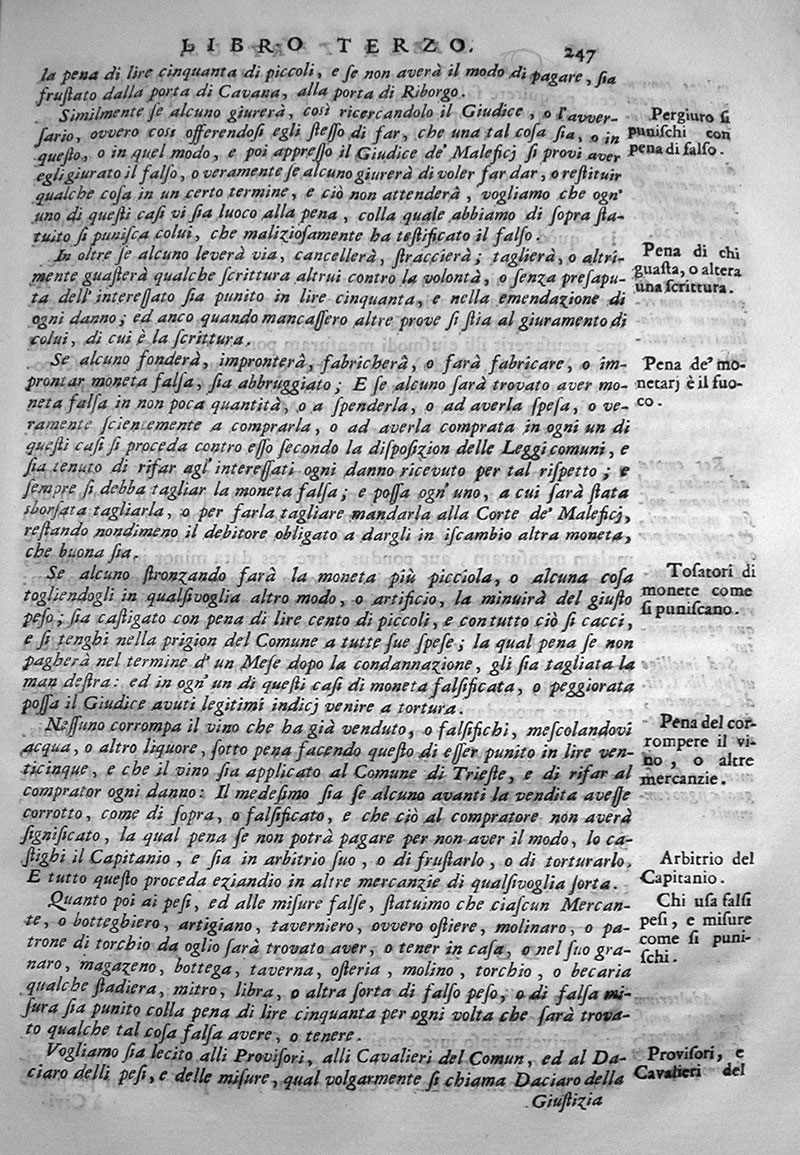 LIBRO TERZO. 247
la pena di lire cinquanta di piccoli, e ſe non averà il modo di pagare, ſia
fruſtato dalla porta di Cavana, alla porta di Riborgo.
Similmente ſe alcuno giurerà, così ricercandolo il Giudice, o l'avver-
ſario, ovvero così offerendoſi egli ſteſſo di far, che una tal coſa ſia, o in
queſto, o in quel modo, e poi appreſſo il Giudice de' Maleficj ſi provi aver
egli giurato il falſo, o veramente ſe alcuno giurerà di voler far dar, o reſtituir
qualche coſa in un certo termine, e ciò non attenderà, vogliamo che ogn'
uno di queſti caſi vi ſia luoco alla pena, colla quale abbiamo di ſopra ſta-
tuito ſi puniſca colui, che malizioſamente ha teſtificato il falſo.
Pergiuro ſi
puniſchi con
pena di falſo.
In oltre ſe alcuno leverà via, cancellerà, ſtraccierà; taglierà, o altri-
mente guaſterà qualche ſcrittura altrui contro la volontà, o ſenza preſapu-
ta dell' intereſſato ſia punito in lire cinquanta, e nella emendazione di
ogni danno; ed anco quando mancaſſero altre prove ſi ſtia al giuramento di
colui, di cui è la ſcrittura.
Pena di chi
guaſta, o altera
una ſcrittura.
Se alcuno fonderà, impronterà, fabricherà, o farà fabricare, o im-
prontar moneta falſa, ſia abbruggiato; E ſe alcuno ſarà trovato aver mo-
neta falſa in non poca quantità, o a ſpenderla, o ad averla ſpeſa, o ve-
ramente ſcientemente a comprarla, o ad averla comprata in ogni un di
queſti caſi ſi proceda contro eſſo ſecondo la diſpoſizion delle Leggi comuni, e
ſia tenuto di rifar agl' intereſſati ogni danno ricevuto per tal riſpetto; e
ſempre ſi debba tagliar la moneta falſa; e poſſa ogn' uno, a cui ſarà ſtata
sborſata tagliarla, o per farla tagliare mandarla alla Corte de' Maleficj,
reſtando nondimeno il debitore obligato a dargli in iſcambio altra moneta,
che buona ſia.
Pena de' mo-
netarj è il fuo-
co.
Se alcuno ſtronzando farà la moneta più picciola, o alcuna coſa
togliendogli in qualſivoglia altro modo, o artificio, la minuirà del giuſto
peſo; ſia caſtigato con pena di lire cento di piccoli, e contutto ciò ſi cacci,
e ſi tenghi nella prigion del Comune a tutte ſue ſpeſe; la qual pena ſe non
pagherà nel termine d' un Meſe dopo la condannazione, gli ſia tagliata la
man deſtra: ed in ogn' un di queſti caſi di moneta falſificata, o peggiorata
poſſa il Giudice avuti legitimi indicj venire a tortura.
Toſatori di
monete come
ſi puniſcano.
Neſſuno corrompa il vino che ha già venduto, o falſifichi, meſcolandovi
acqua, o altro liquore, ſotto pena facendo queſto di eſſer punito in lire ven-
ticinque, e che il vino ſia applicato al Comune di Trieſte, e di rifar al
comprator ogni danno: Il medeſimo ſia ſe alcuno avanti la vendita aveſſe
corrotto, come di ſopra, o falſificato, e che ciò al compratore non averà
ſignificato, la qual pena ſe non potrà pagare per non aver il modo, lo ca-
ſtighi il Capitanio, e ſia in arbitrio ſuo, o di fruſtarlo, o di torturarlo,
E tutto queſto proceda eziandio in altre mercanzie di qualſivoglia ſorta.
Pena del cor-
rompere il vi-
no, o altre
mercanzie.
Arbitrio del
Capitanio.
Quanto poi ai peſi, ed alle miſure falſe, ſtatuimo che ciaſcun Mercan-
te, o botteghiero, artigiano, taverniero, ovvero oſtiere, molinaro, o pa-
trone di torchio da oglio ſarà trovato aver, o tener in caſa, o nel ſuo gra-
naro, magazeno, bottega, taverna, oſteria, molino, torchio, o becaria
qualche ſtadiera, mitro, libra, o altra ſorta di falſo peſo, o di falſa mi-
ſura ſia punito colla pena di lire cinquanta per ogni volta che ſarà trova-
to qualche tal coſa falſa avere, o tenere.
Chi uſa falſi
peſi, e miſure
come ſi puni-
ſchi.
Vogliamo ſia lecito alli Proviſori, alli Cavalieri del Comun, ed al Da-
ciaro delli peſi, e delle miſure, qual volgarmente ſi chiama Daciaro della
Proviſori, e
Cavalieri del
Giuſtizia